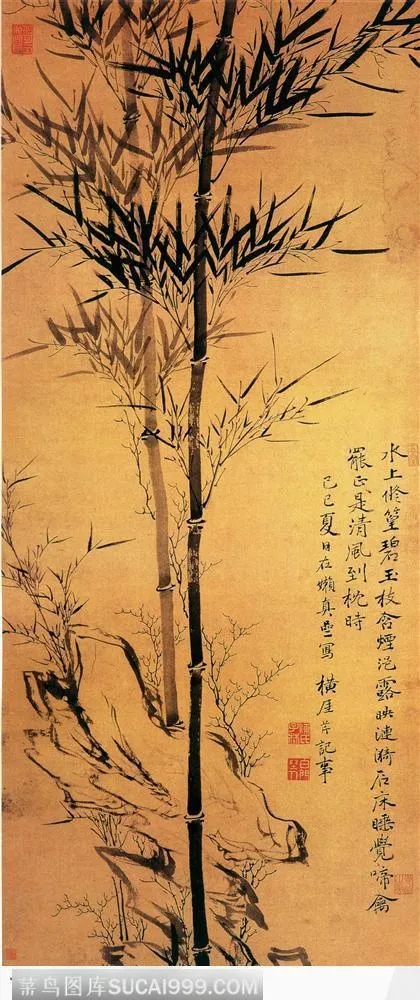 水上修篁碧玉枝含煙浥露映漣漪石床睡覺啼禽
罷正是清風到枕時
己巳夏日在嬾真寫 橫厓芹記事
菜鸟图库SUCAI999.COM